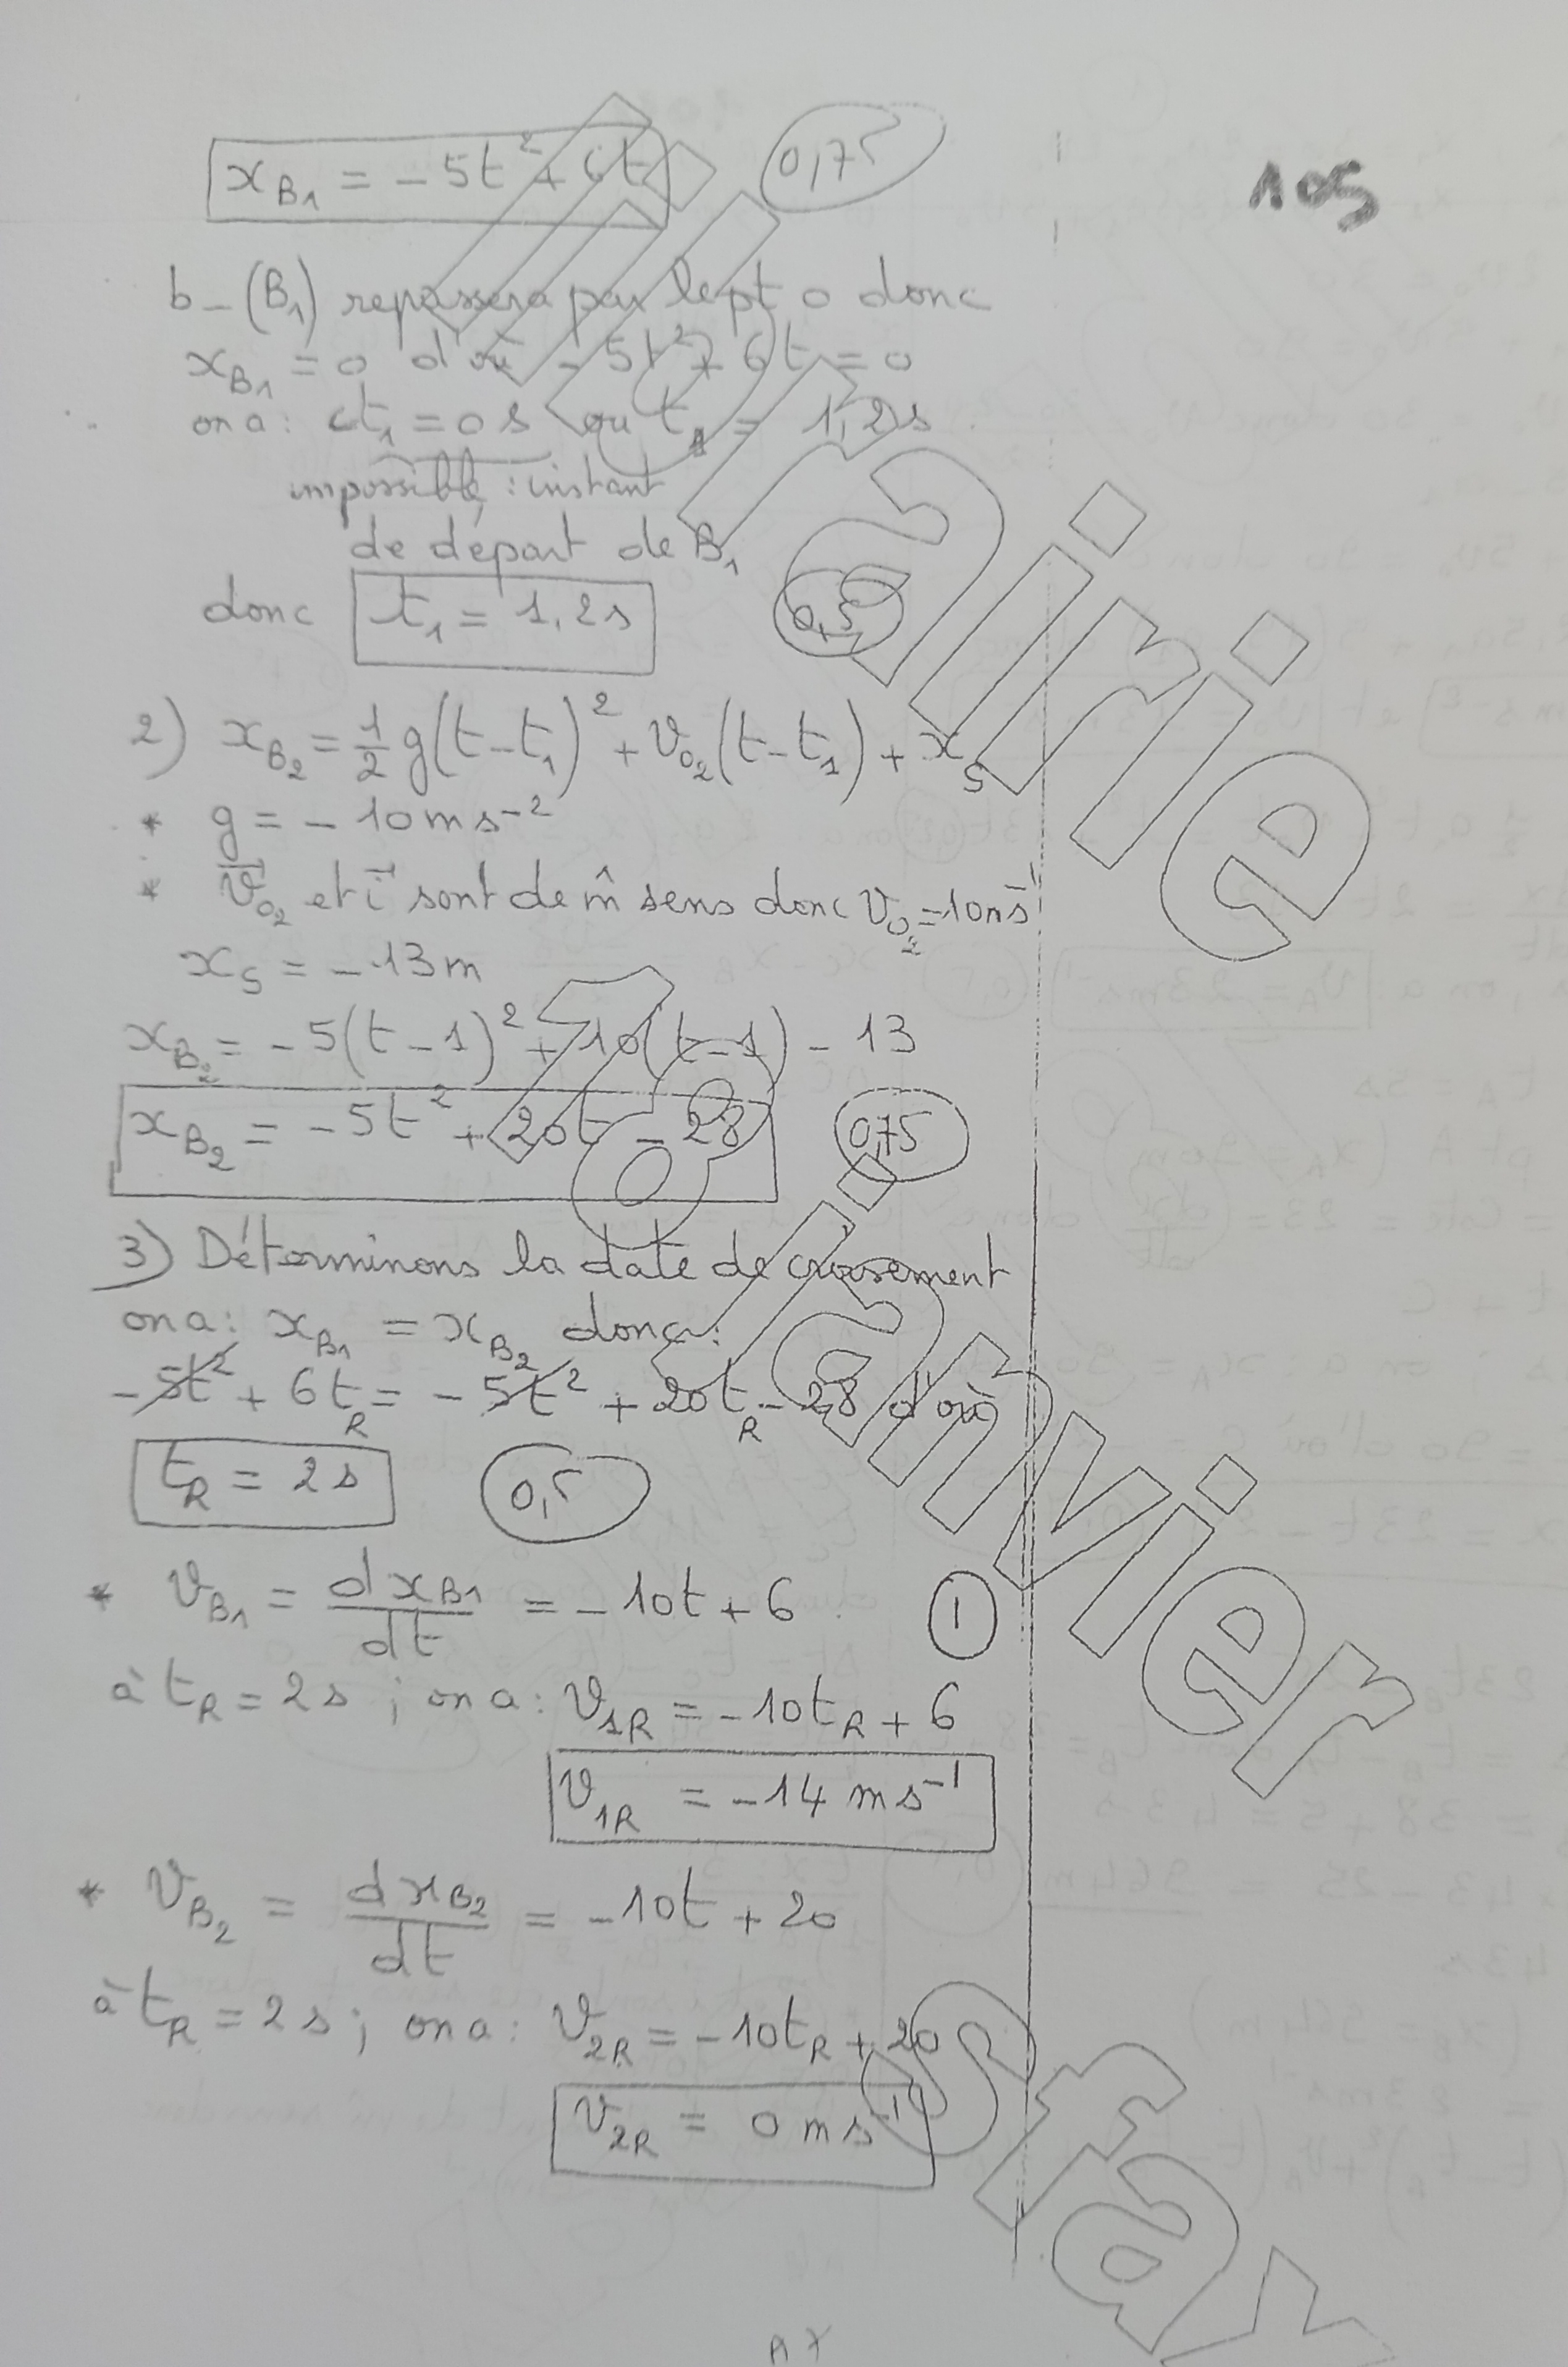 x_B1 = -5t² + 6t 0,75
105
b - (B₁) repassera par le pt o donc
x_B1 = 0 d'où -5t² + 6t = 0
on a : t₁ = 0 s ou t₁ = 1,2 s
impossible : instant
de départ de B₁
donc t₁ = 1,2 s 0,5
2) x_B2 = 1/2 g(t-t₁)² + v₀₂(t-t₁) + x_S
* g = -10 m s⁻²
* v₀₂ et i sont de m̂ sens donc v₀₂ = 10 m s⁻¹
x_S = -13 m
x_B2 = -5(t-1)² + 10(t-1) - 13
x_B2 = -5t² + 20t - 28 0,75
3) Déterminons la date de croisement
on a : x_B1 = x_B2 donc :
-5t² + 6t_R = -5t² + 20t_R - 28 d'où
t_R = 2 s 0,5
* v_B1 = dx_B1/dt = -10t + 6 1
à t_R = 2 s ; on a : v_1R = -10t_R + 6
v_1R = -14 m s⁻¹
* v_B2 = dx_B2/dt = -10t + 20
à t_R = 2 s ; on a : v_2R = -10t_R + 20
v_2R = 0 m s⁻¹
Librairie
18
janvier
sfax